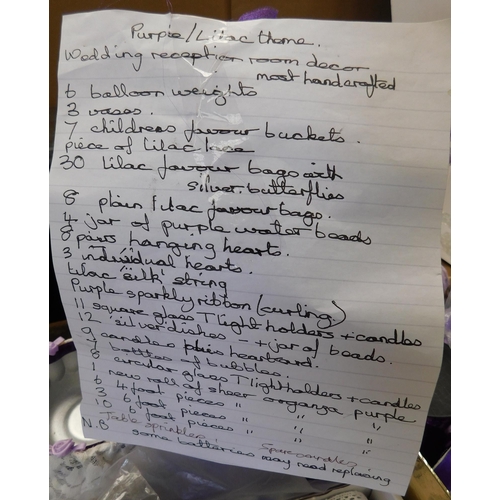 Purple/Lilac theme.
Wedding reception room decor
most handcrafted
6 balloon weights
3 vases.
7 childrens favour buckets.
piece of lilac lace
30 lilac favour bags with
silver butterflies
8 plain lilac favour bags.
4 jar of purple water beads
8 pairs hanging hearts.
3 individual hearts.
Lilac 'silk' string
Purple sparkly ribbon (curling)
11 square glass T light holders + candles
12 'silver' dishes - + jar of beads.
9 candles plus heartsard.
7 bottles of bubbles.
8 circular glass T light holders + candles
1 new roll of sheer organga purple
6 4 foot pieces " " "
3 6 foot pieces " " "
10 6 foot pieces " " "
Table sprinkles. Spare candles.
N.B some batteries may need replacing